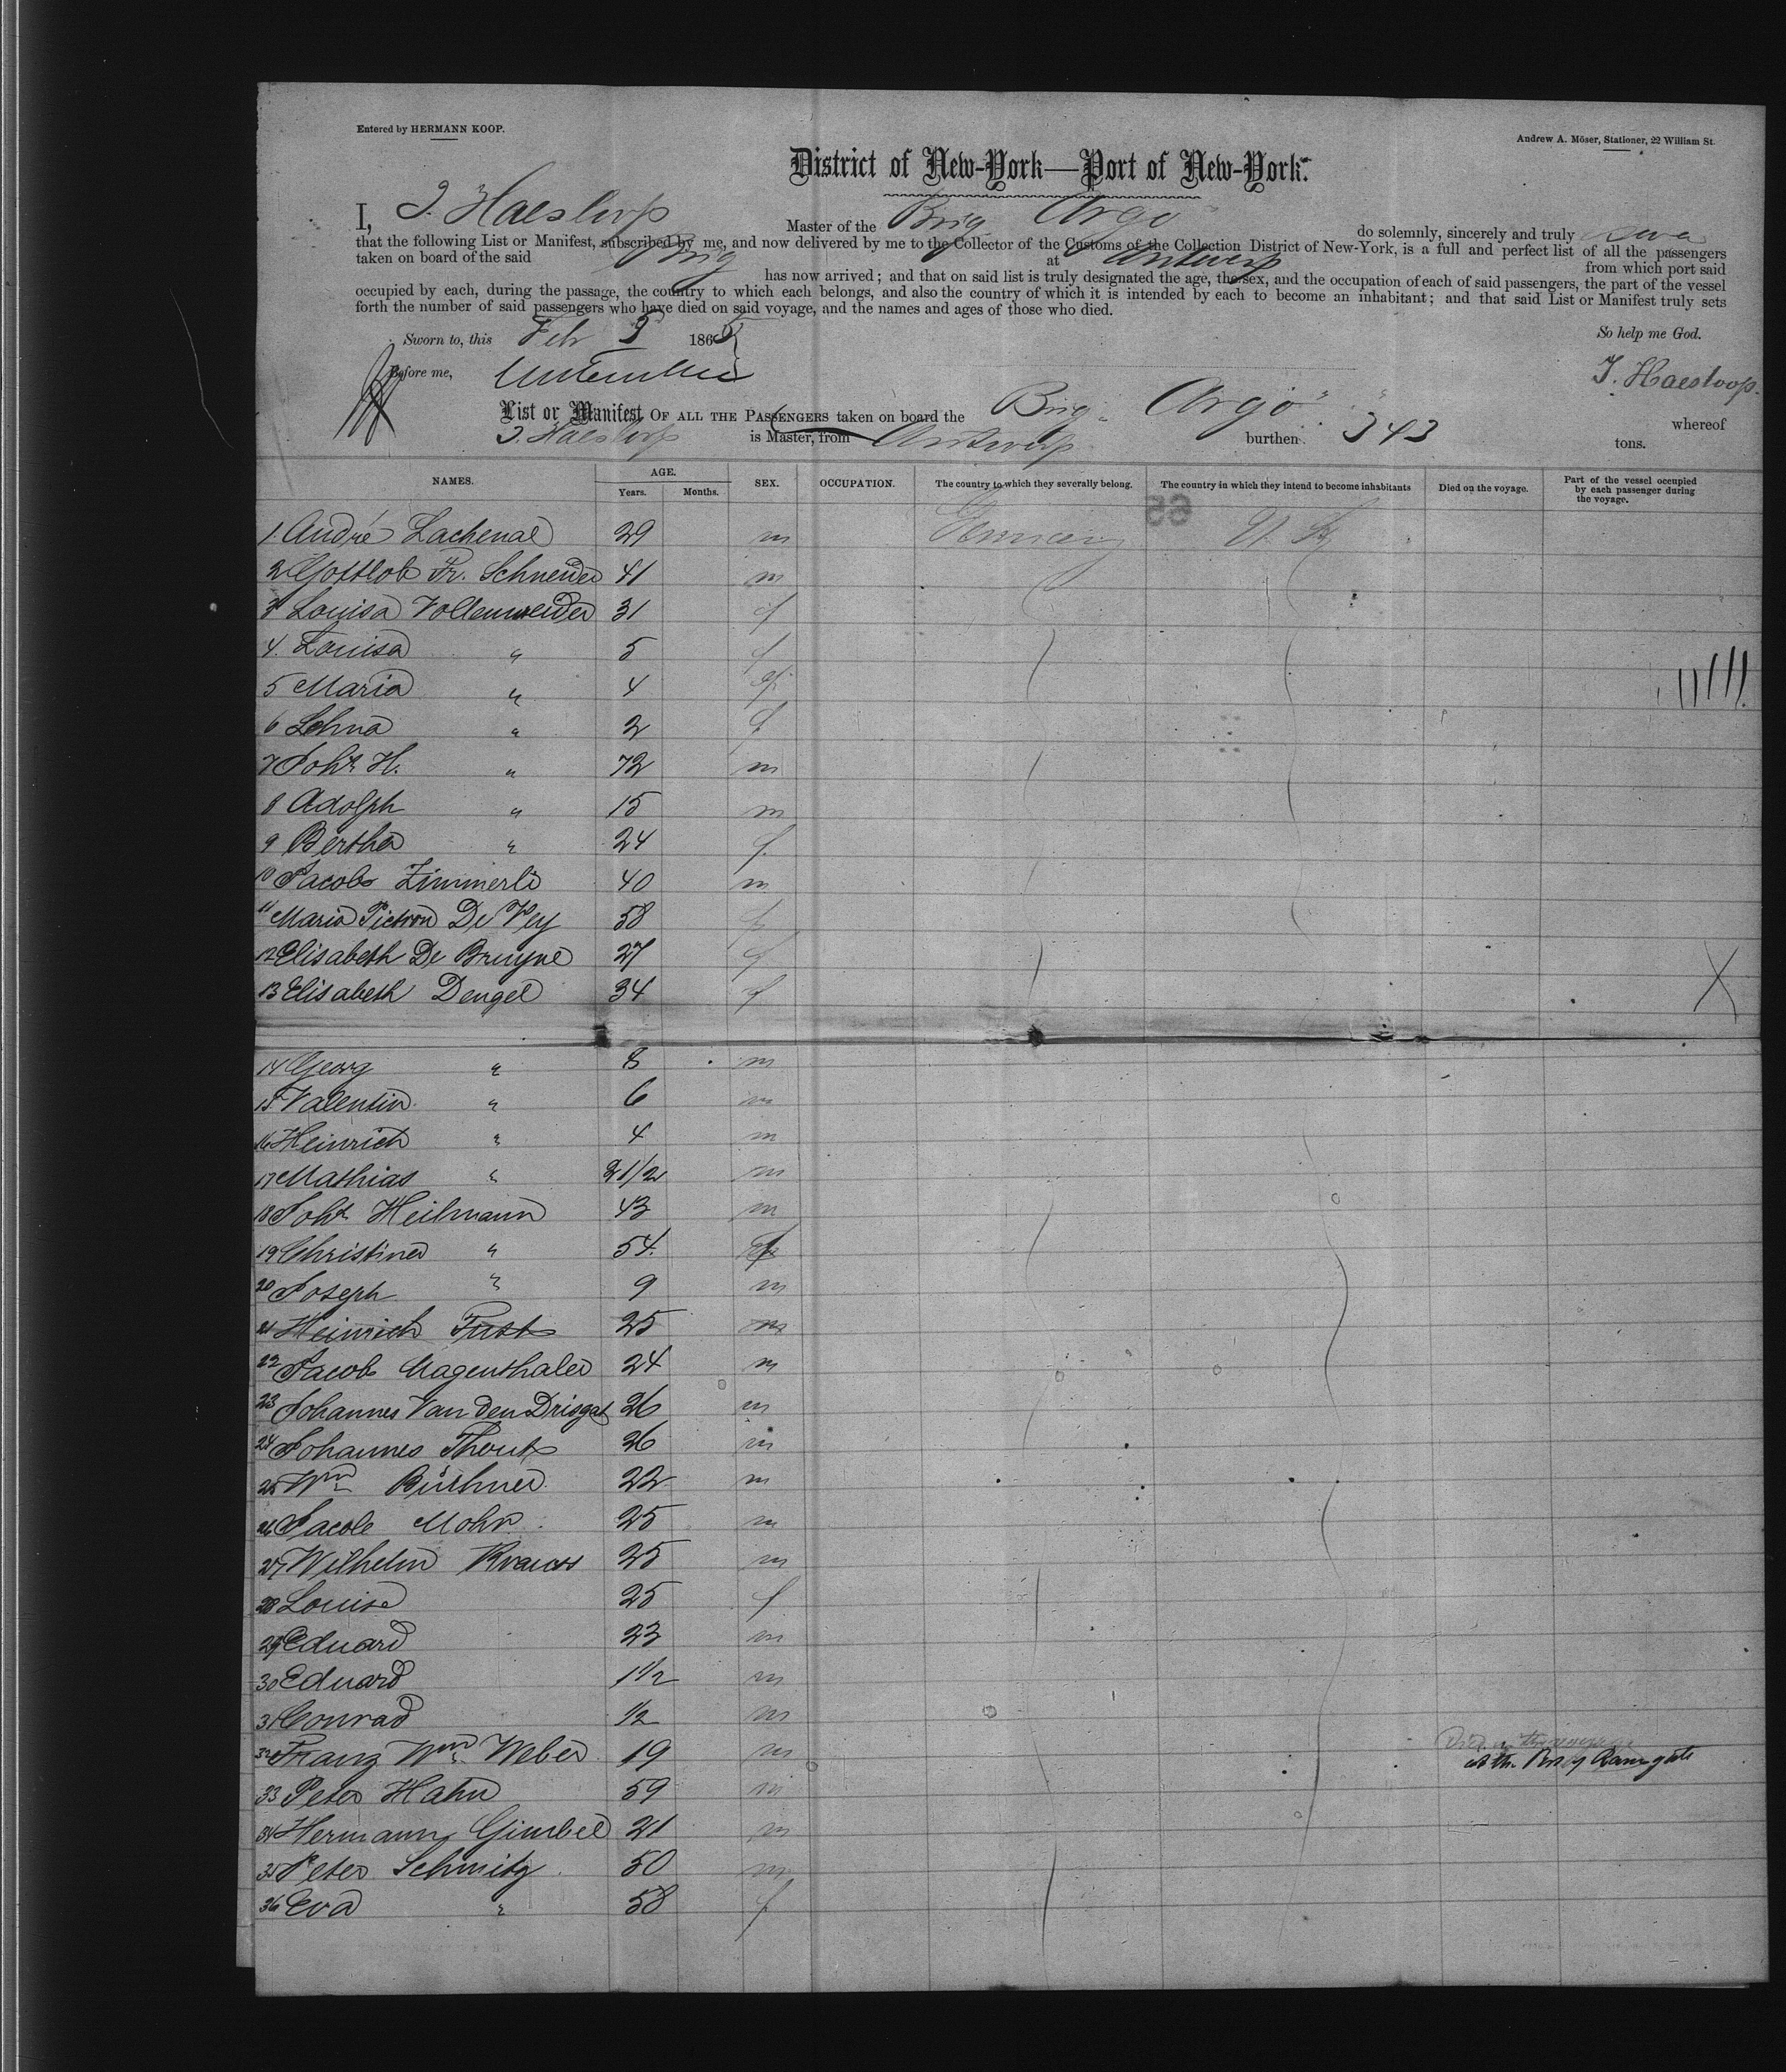 Entered by HERMANN KOOP.
Andrew A. Möser, Stationer, 22 William St.
District of New-York—Port of New-York.
I, J. Haesloop Master of the Brig Argo do solemnly, sincerely and truly
that the following List or Manifest, subscribed by me, and now delivered by me to the Collector of the Customs of the Collection District of New-York, is a full and perfect list of all the passengers
taken on board of the said Brig at Antwerp from which port said
has now arrived; and that on said list is truly designated the age, the sex, and the occupation of each of said passengers, the part of the vessel
occupied by each, during the passage, the country to which each belongs, and also the country of which it is intended by each to become an inhabitant; and that said List or Manifest truly sets
forth the number of said passengers who have died on said voyage, and the names and ages of those who died.
Sworn to, this Feb 3 1865 So help me God.
Before me, J. Haesloop.
List or Manifest OF ALL THE PASSENGERS taken on board the Brig "Argo" whereof
J. Haesloop is Master, from Antwerp burthen 343 tons.
NAMES. AGE. Years. Months. SEX. OCCUPATION. The country to which they severally belong. The country in which they intend to become inhabitants Died on the voyage. Part of the vessel occupied by each passenger during the voyage.
65
1. André Lachenal 29 m Germany U. St.
2 Gottlob Fr. Schneider 41 m
3 Louisa Vollenweider 31 f
4. Louisa " 5 f
5 Maria " 4 f
6 Lehna " 2 f
7 Joh. H. " 72 m
8 Adolph " 15 m
9 Bertha " 24 f
10 Jacob Zimmerli 40 m
11 Maria De Vey 58 f
12 Elisabeth De Bruyne 27 f
13 Elisabeth Dengel 34 f
14 Georg " 8 m
15 Valentin " 6 m
16 Heinrich " 4 m
17 Mathias " 2 1/2 m
18 Joh. Heilmann 43 m
19 Christina " 54 f
20 Joseph " 9 m
21 Heinrich Fust 25 m
22 Jacob Magenthaler 24 m
23 Johannes Van den 26 m
24 Johannes 26 m
25 Wm Büchner 22 m
26 Jacob Mohr 25 m
27 Wilhelm Krauss 25 m
28 Louise 25 f
29 Eduard 23 m
30 Eduard 1 1/2 m
31 Conrad 1/2 m
32 Franz Wm Weber 19 m
at the Ramsgate
33 Peter Hahn 59 m
34 Hermann Gimbel 21 m
35 Peter Schmitz 50 m
36 Eva " 58 f